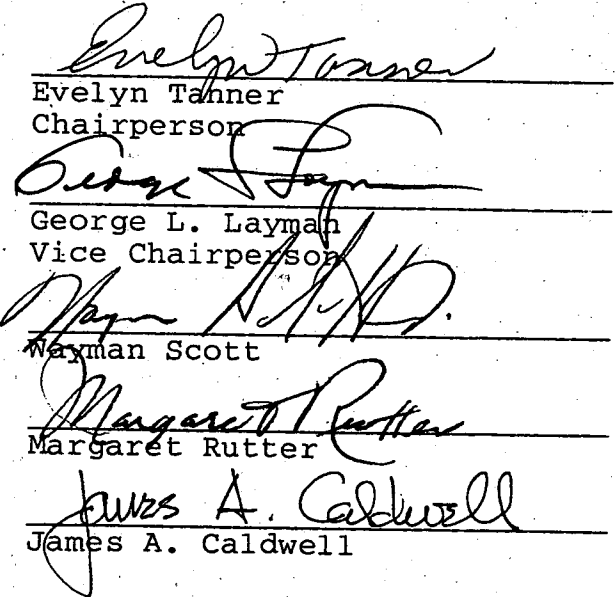 Evelyn Tanner
Evelyn Tanner
Chairperson
George L Layman
George L. Layman
Vice Chairperson
Wayman Scott
Margaret Rutter
Margaret Rutter
James A. Caldwell
James A. Caldwell